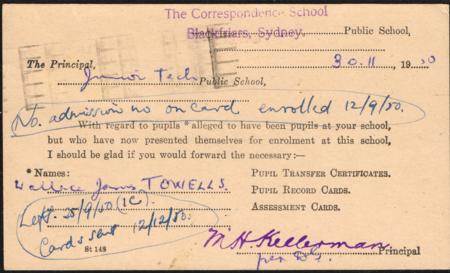 The Correspondence School
Blackfriars, Sydney. Public School,
30.11 1950
The Principal,
Junior Tech Public School,
No. admission no on card enrolled 12/9/50.
With regard to pupils * alleged to have been pupils at your school,
but who have now presented themselves for enrolment at this school,
I should be glad if you would forward the necessary:—
* Names: PUPIL TRANSFER CERTIFICATES.
Wallace James TOWELLS. PUPIL RECORD CARDS.
ASSESSMENT CARDS.
Left 25/9/50 (1C)
Cards sent 12/12/50.
St 148
M H Kellerman Principal
per